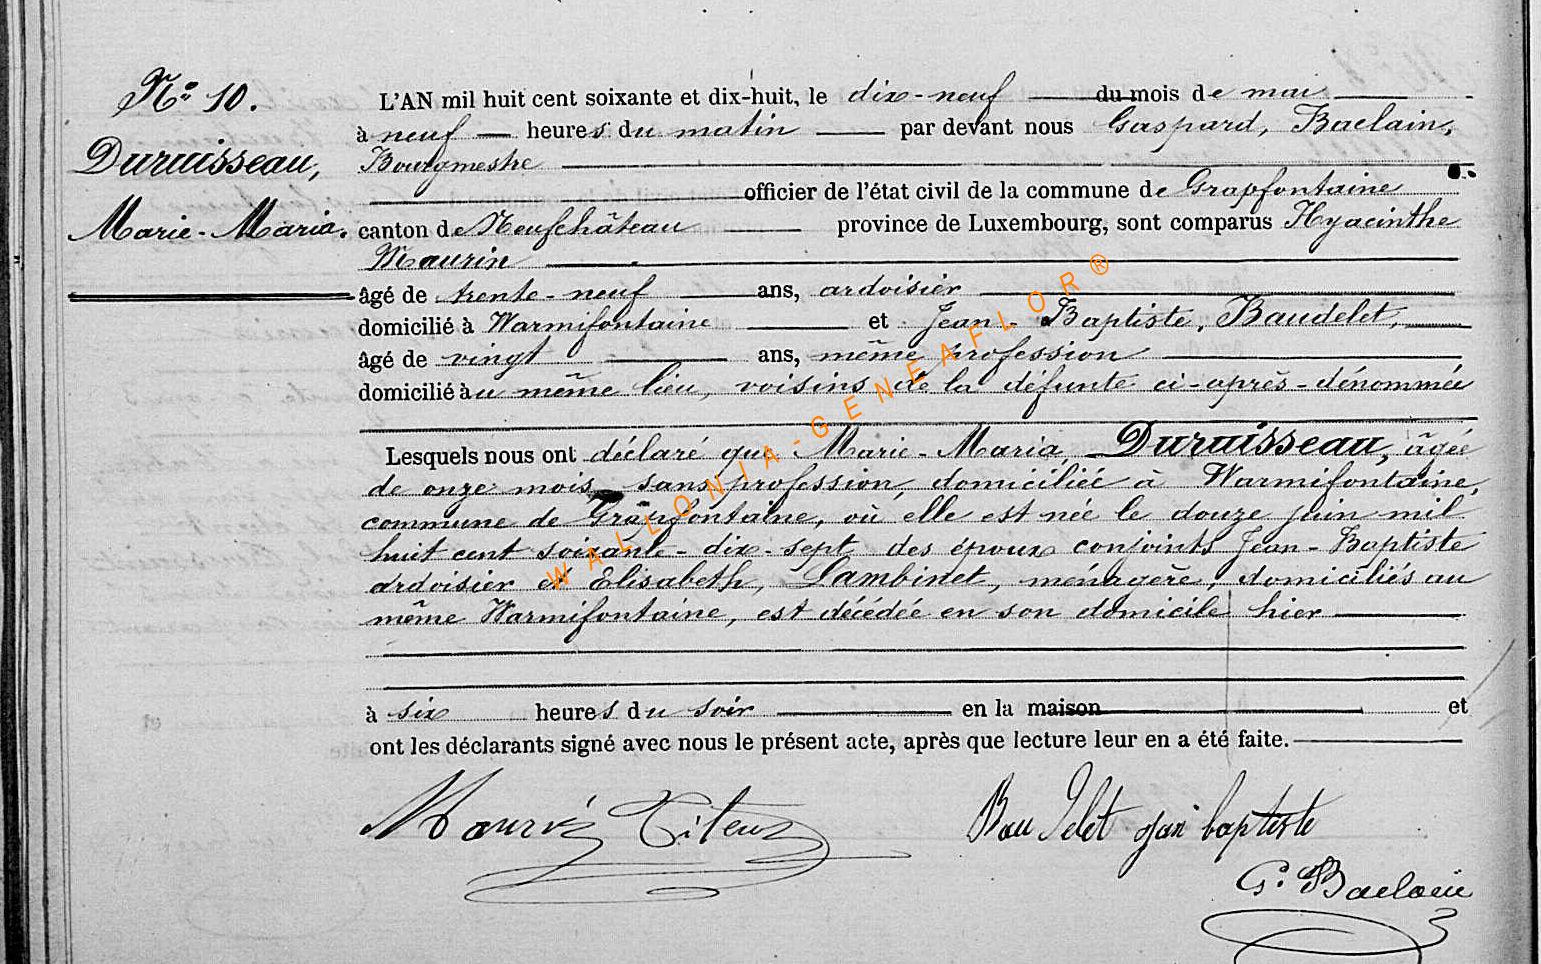 N° 10.
Duruisseau,
Marie-Maria.
L'AN mil huit cent soixante et dix-huit, le dix-neuf du mois de mai
à neuf heures du matin par devant nous Gaspard, Baclain,
Bourgmestre
officier de l'état civil de la commune de Grapfontaine
canton de Neufchâteau province de Luxembourg, sont comparus Hyacinthe
Maurin
âgé de trente-neuf ans, ardoisier
domicilié à Warmifontaine et Jean-Baptiste, Baudelet,
âgé de vingt ans, même profession
domicilié au même lieu, voisins de la défunte ci-après-dénommée
Lesquels nous ont déclaré que Marie-Maria Duruisseau, âgée
de onze mois, sans profession, domiciliée à Warmifontaine,
commune de Grapfontaine, où elle est née le douze juin mil
huit cent soixante-dix-sept des époux conjoints Jean-Baptiste
ardoisier et Elisabeth, Lambinet, ménagère, domiciliés au
même Warmifontaine, est décédée en son domicile hier
à six heures du soir en la maison et
ont les déclarants signé avec nous le présent acte, après que lecture leur en a été faite.
Baudelet jan baptiste
G. Baclain
WALLONIA-GENEAFLOR®